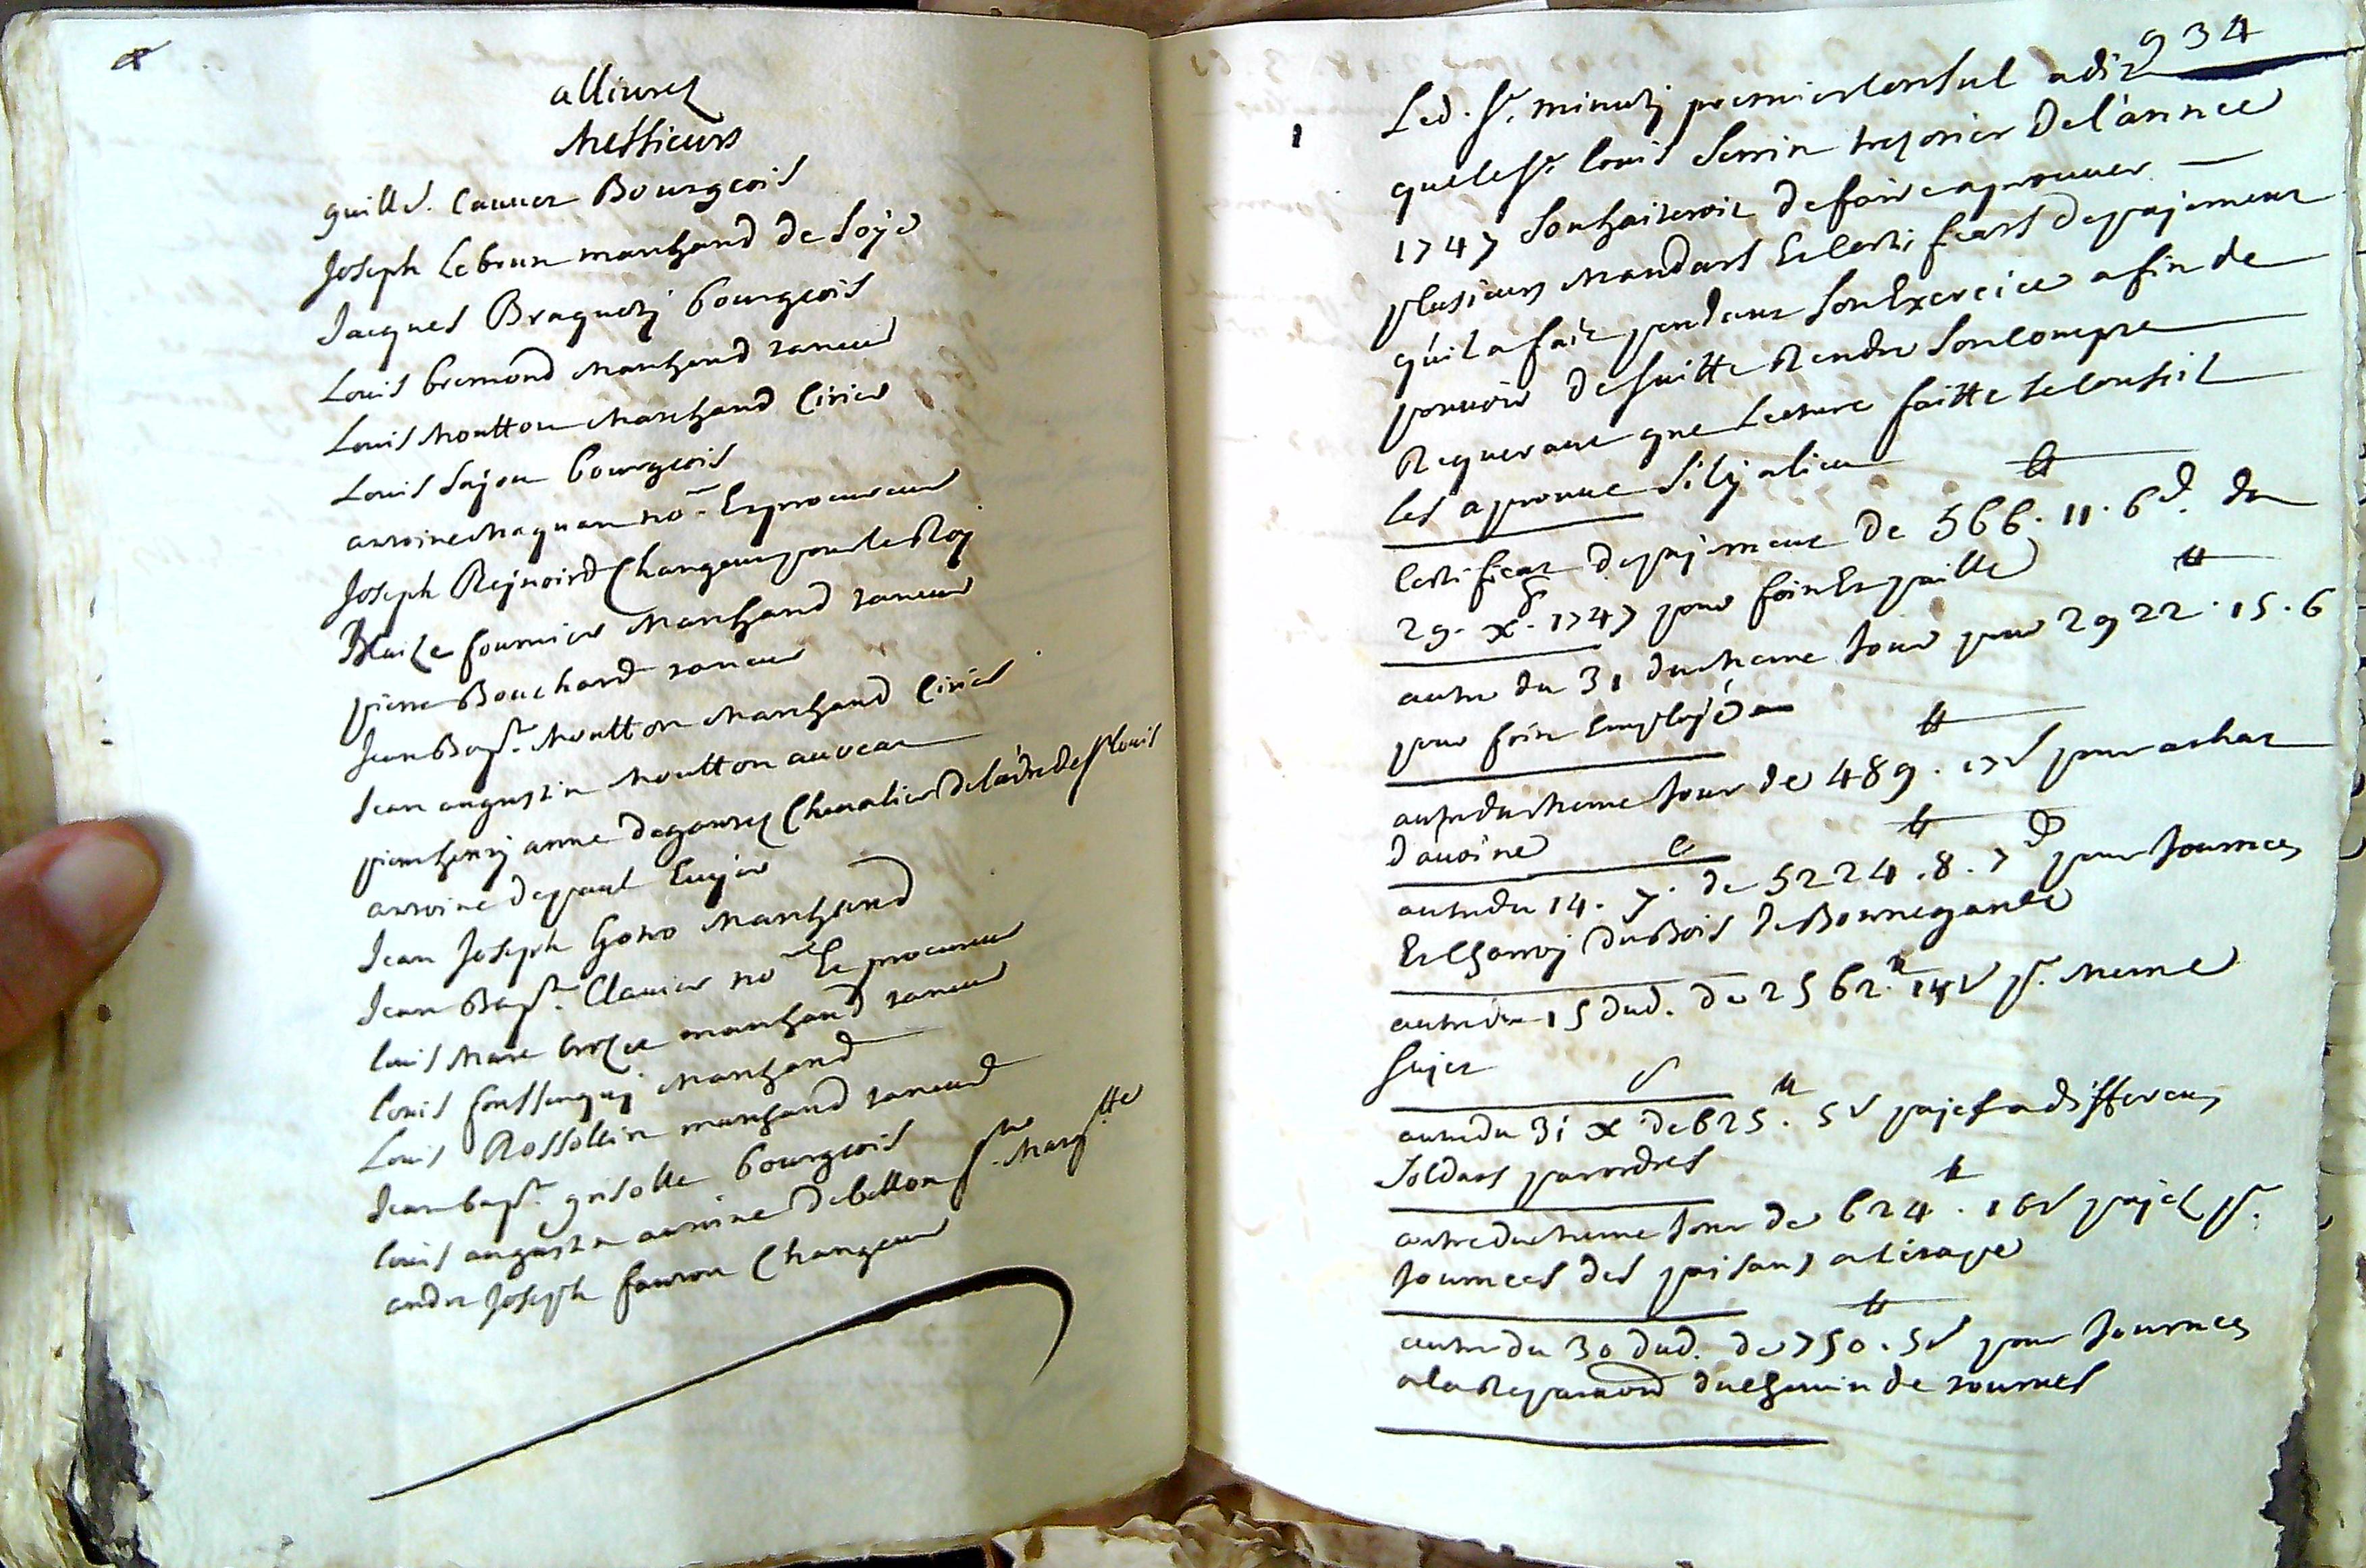 allivrez
Messieurs
guille. Cauver Bourgeois
Joseph Lebrun marchand de soye
Jacques Braquety bourgeois
Louis bremond marchand taneur
Louis Moutton Marchand Cirier
Louis Sajou bourgeois
antoine Maquan no.re Et procureur
Joseph Rejnoird Changeur pour le Roy
Blaize fournier Marchand taneur
pierre Bouchard taneur
Jean Bapt. Moutton Marchand Cirier
Jean augustin Moutton avocat
pierre henry anne degantez Chevalier de l'ordre de st louis
antoine depaul Ecuyer
Jean Joseph Marchand
Jean Bapt. Clavier no.re Et procureur
louis Marc marchand taneur
louis Marchand
Louis Rossollin marchand taneur
Jean bapt. grisolle bourgeois
louis augustin antoine debellon ste Margtte
andré Joseph Changeur
934
1 Led. sr. minuty premier Consul a dit
que le sr. louis Serrin trezorier de l'année
1747 souhaiteroit de faire aprouver
plusieurs mandats Et Certificats de pajement
qu'il a fait pendant son Exercice afin de
pouvoir de suitte Rendre son Compte
Requerant que Lecture faitte le Conseil
les aprouve s'il y a lieu
Certificat de pajement de 566 tt. 11. 6 d. du
29. xbre. 1747 pour foin Et paille
autre du 31 du meme jour pour 2922 tt. 15. 6
pour foin Employé
autre du meme jour de 489 tt. 17 s pour achat
d'avoine
autre du 14. 7bre. de 5224 tt. 8. 7 d pour journées
Et Charroy du Bois de
autre du 15 dud. de 2562 tt. 14 s pr. meme
sujet
autre du 31 xbre de 625 tt. 5 s pajés a differents
soldats par ordres
autre du meme jour de 624 tt. 16 s pajez pr.
journees des paisans
autre du 30 dud. de 750 tt. 5 s pour journees
a la Reparaõn du Chemin de tourves